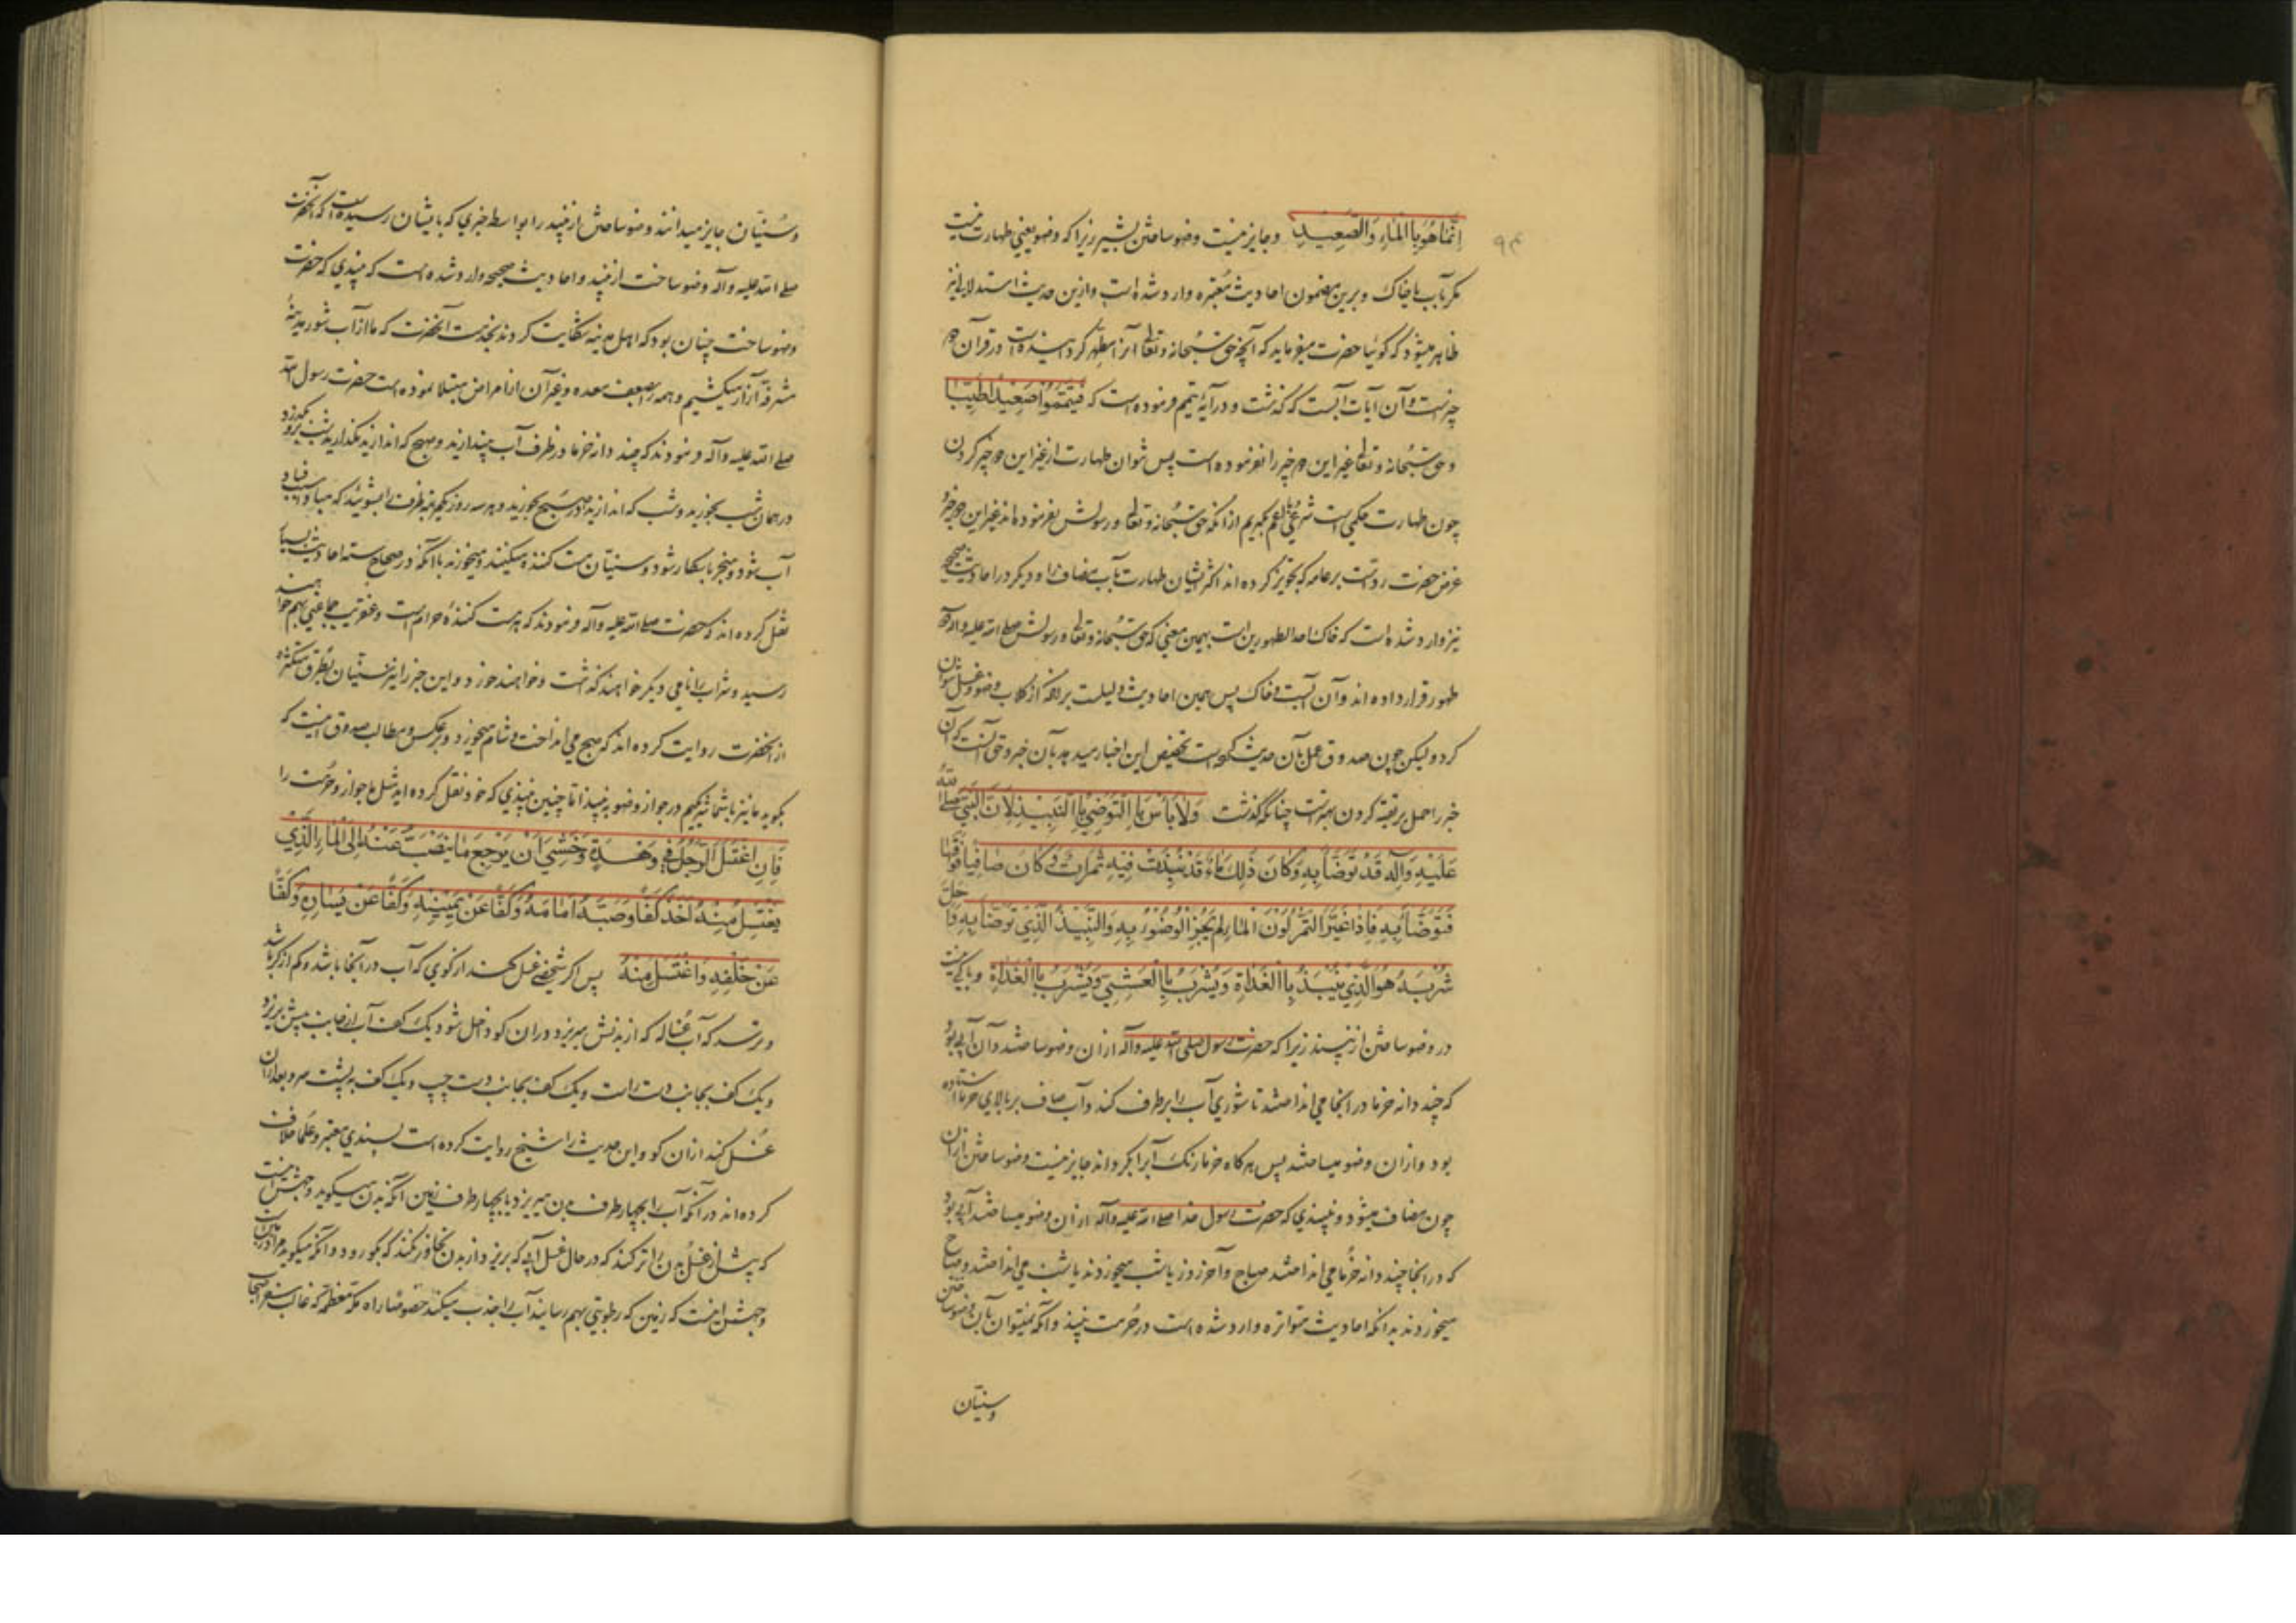 إِنَّمَا هُوَ بِالْمَاءِ وَالصَّعِيدِ و جایز نیست وضو ساختن بشیر زیرا که وضو یعنی طهارت نیست
مگر بآب یا خاک و برین مضمون احادیث معتبره وارد شده است و ازین حدیث استدلالی نیز
ظاهر میشود که گوئیا حضرت میفرماید که آنچه حق سُبحانه و تعالی آنرا مطهر گردانیده است در قرآن دو
چیزست و آن آیات آبست که گذشت و در آیه تیمم فرموده است که فَتَيَمَّمُوا صَعِيدًا طَيِّبًا
و حق سُبحانه و تعالی غیر این دو چیز را نفرموده است پس نتوان طهارت از غیر این دو چیز کردن
چون طهارت حکمی است شرعی تا علم بهم نرسد از آنکه حق سُبحانه و تعالی و رسولش نفرموده اند غیر این دو چیز و
غرض حضرت ردّست بر عامه که تجویز کرده اند اکثر ایشان طهارت بآب مضاف را و دیگر در احادیث صحیحه
نیز وارد شده است که خاک احد الطهورین است بهمین معنی که حق سُبحانه و تعالی و رسولش صلی الله علیه و آله دو
طهور قرار داده اند و آن آبست و خاک پس همین احادیث دلیلست بر آنکه از گلاب وضو و غسل نتوان
کرد و لیکن چون صدوق عمل بآن حدیث کرده است تخصیص این اخبار میدهد بآن خبر و حق آنست که آن
خبر را حمل بر تقیه کردن بهترست چنانکه گذشت وَلَا بَأْسَ بِالتَّوَضِّي بِالنَّبِيذِ لِأَنَّ النَّبِيَّ صَلَّى اللهُ
عَلَيْهِ وَآلِهِ قَدْ تَوَضَّأَ بِهِ وَكَانَ ذَلِكَ مَاءً قَدْ نُبِذَتْ فِيهِ تُمَيْرَاتٌ وَكَانَ صَافِيًا فَوْقَهَا
فَتَوَضَّأَ بِهِ فَإِذَا غَيَّرَ التَّمْرُ لَوْنَ الْمَاءِ لَمْ يَجُزِ الْوُضُوءُ بِهِ وَالنَّبِيذُ الَّذِي تَوَضَّأَ بِهِ وَأَحَلَّ
شُرْبَهُ هُوَ الَّذِي يُنْبَذُ بِالْغَدَاةِ وَيُشْرَبُ بِالْعَشِيِّ وَيُشْرَبُ بِالْغَدَاةِ و باکی نیست
در وضو ساختن از نبیذ زیرا که حضرت رسول صلی الله علیه و آله ازان وضو ساختند و آن آبی بود
که چند دانه خرما در آنجا می انداختند تا شوری آب را بر طرف کند و آب صاف بر بالای خرما ایستاده
بود و ازان وضو میساختند پس هرگاه خرما رنگ آبرا بگرداند جایز نیست وضو ساختن ازان
چون مضاف میشود و نبیذی که حضرت رسول خدا صلی الله علیه و آله ازان وضو میساختند آبی بود
که در آنجا چند دانه خرما می انداختند صباح و آخر روز یا شب میخوردند یا شب می انداختند و صباح
میخوردند بدانکه احادیث متواتره وارد شده است در حُرمت نبیذ و آنکه نمیتوان بآن وضو ساختن
وسنیان
و سُنّیان جایز میدانند وضو ساختن از نبیذ را بواسطه خبری که بایشان رسیده است که آنحضرت
صلی الله علیه و آله وضو ساخت از نبیذ و احادیث صحیحه وارد شده است که نبیذی که حضرت
وضو ساخت چنان بود که اهل مدینه شکایت کردند بخدمت آنحضرت که ما از آب شور مدینهٔ
مشرفه آزار میکشیم و همه را ضعف معده و غیر آن از امراض مبتلا نموده است حضرت رسول الله
صلی الله علیه و آله فرمودند که چند دانه خرما در ظرف آب بیندازند و صبح که اندازند نگذارید شب بگذرد
در همان شب بخورید و شب که اندازید در صبح بخورید و هر سه روز یکمرتبه ظرف را بشوئید که مبادا سبب فساد
آب شود و منجر باسکار شود و سنیان مست کننده میکنند و میخورند با آنکه در صحاح سته احادیث بسیار
نقل کرده اند که حضرت صلی الله علیه و آله فرمودند که مست کننده حرام است و عنقریب جماعتی بهم خواهند
رسید و شراب را نامی دیگر خواهند گذاشت و خواهند خورد و این خبر را نیز سنیان بطرق متکثره
از آنحضرت روایت کرده اند که صبح می انداخت و شام میخورد و بر عکس و مطالب صدوق اینست که
بگوید ما نیز با شما شریکیم در جواز وضو به نبیذ اما چنین نبیذی که خود نقل کرده اید مثل ما جواز و حرمت را
فَإِنِ اغْتَسَلَ الرَّجُلُ فِي وَهْدَةٍ وَخَشِيَ أَنْ يَرْجِعَ مَا يَنْصَبُّ عَنْهُ إِلَى الْمَاءِ الَّذِي
يَغْتَسِلُ مِنْهُ أَخَذَ كَفًّا وَصَبَّهُ أَمَامَهُ وَكَفًّا عَنْ يَمِينِهِ وَكَفًّا عَنْ يَسَارِهِ وَكَفًّا
عَنْ خَلْفِهِ وَاغْتَسَلَ مِنْهُ پس اگر شخصی غسل کند از گوی که آب در آنجا باشد و کم از کر باشد
و ترسد که آب غُساله که از بدنش میریزد دران گو داخل شود یک کف آب از جانب پیش بریزد
و یک کف بجانب دست راست و یک کف بجانب دست چپ و یک کف به پشت سر و بعد ازان
غُسل کند ازان گو و این حدیث را شیخ روایت کرده است بسندی معتبر و علما خلاف
کرده اند در آنکه آب را بچهار طرف بدن میریزد یا بچهار طرف زمین آنکه بدن میگوید وجهش اینست
که پیش از غسل بدن را تر کند که در حال غسل آبی که بریزد از بدن تجاوز نکند که بگو رود و آنکه میگوید مراد زمین است
وجهش اینست که زمین که رطوبتی بهم رسانید آب را جذب میکند خصوصا راه مکه معظمه که غالب سفر